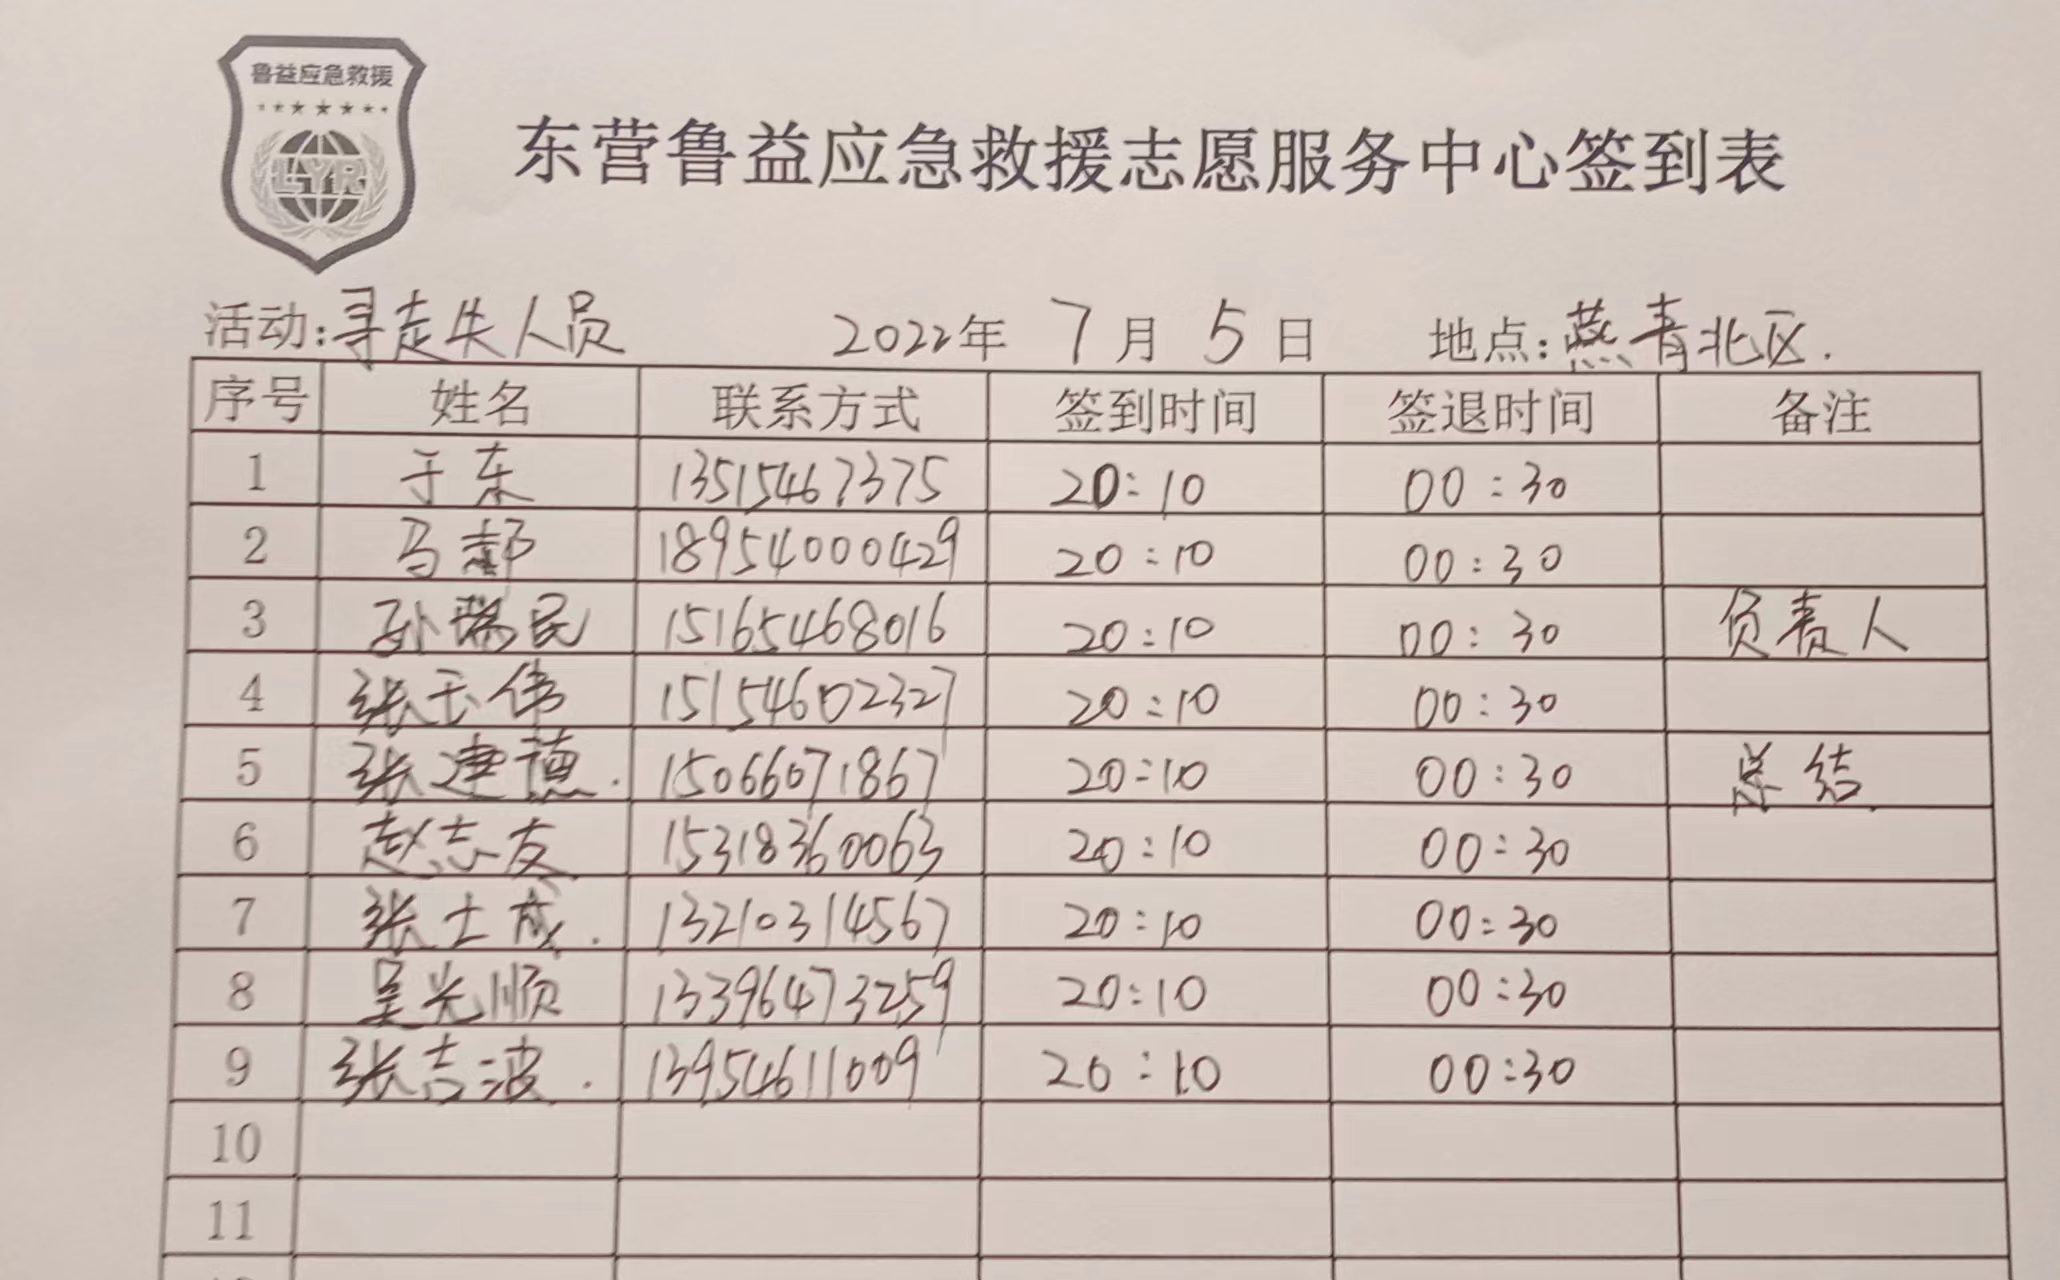 鲁益应急救援
LYR
东营鲁益应急救援志愿服务中心签到表
活动:寻走失人员 2022年 7月 5日 地点:燕青北区.
序号 姓名 联系方式 签到时间 签退时间 备注
1 于东 13515467375 20:10 00:30
2 马郝 18954000429 20:10 00:30
3 孙瑞民 15165468016 20:10 00:30 负责人
4 张玉伟 15154602327 20:10 00:30
5 张建德. 15066071867 20:10 00:30 总结
6 赵志友 15318360063 20:10 00:30
7 张士成. 13210314567 20:10 00:30
8 吴光顺 13396473259 20:10 00:30
9 张吉波. 13954611009 20:10 00:30
10
11